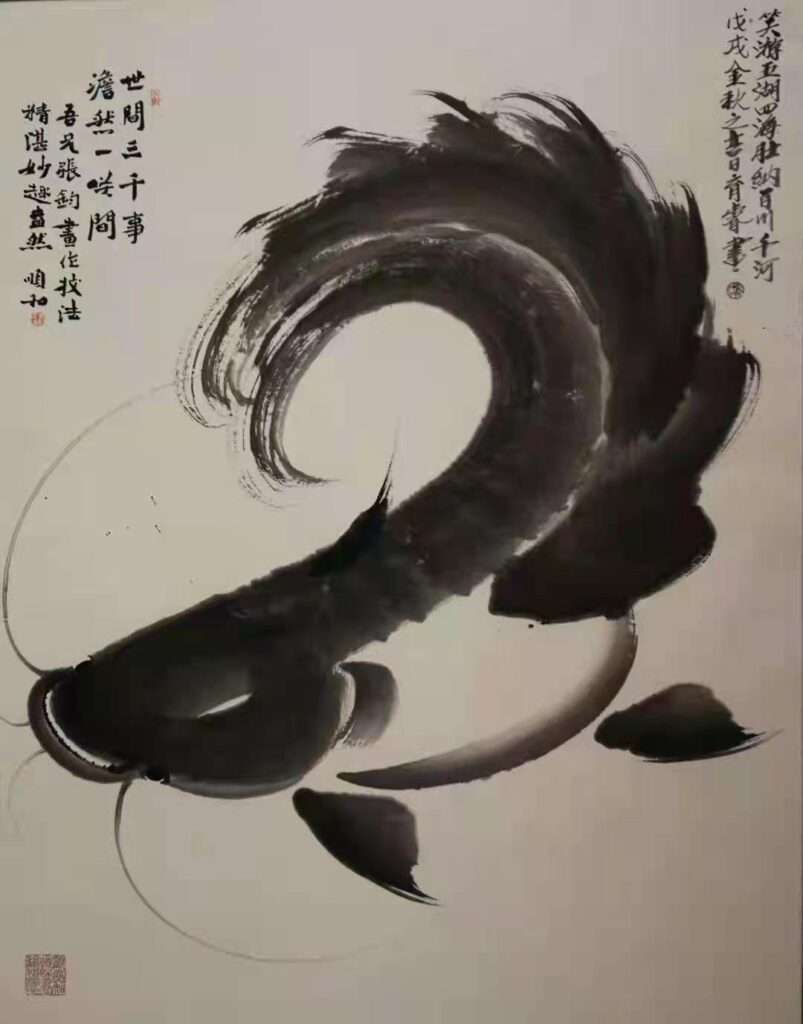 笑游五湖四海肚納百川千河
戊戌金秋之吉日育睿畫
世間三千事
澹然一笑間
吾兄張鈞畫作技法
精湛妙趣盎然 順和